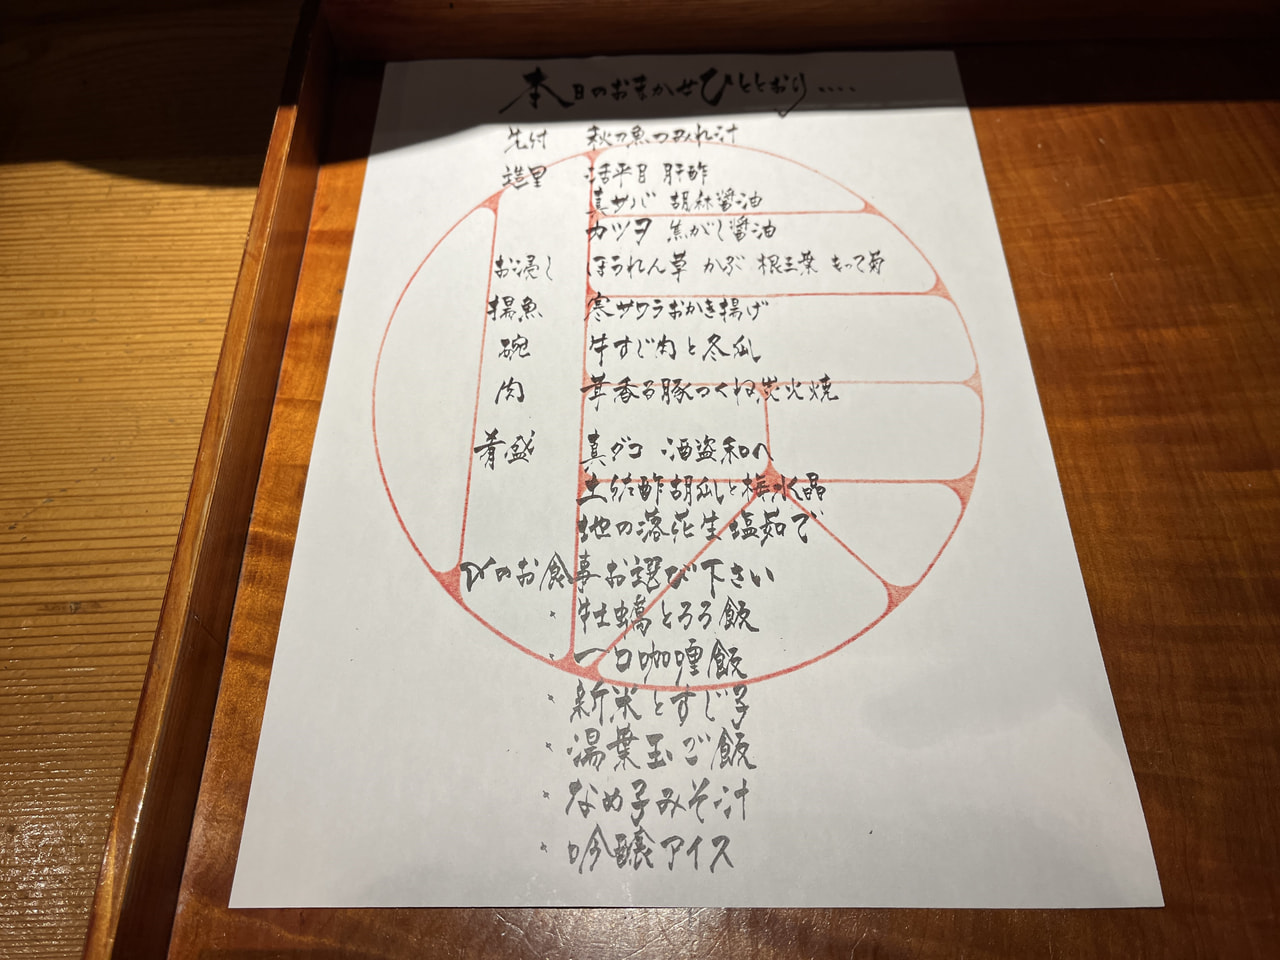 本日のおまかせひととおり....
先付 秋刀魚つみれ汁
造里 活平目 肝酢
真サバ 胡麻醤油
カツヲ 焦がし醤油
お浸し ほうれん草 かぶ 根三葉 もって菊
揚魚 寒サワラおかき揚げ
碗 牛すじ肉と冬瓜
肉 茸香る豚つくね炭火焼
肴盛 真ダコ 酒盗和へ
土佐酢胡瓜と梅水晶
地の落花生塩茹で
〆のお食事お選び下さい
・牡蠣とろろ飯
・一口咖喱飯
・新米とすじ子
・湯葉玉ご飯
・なめ子みそ汁
・吟醸アイス